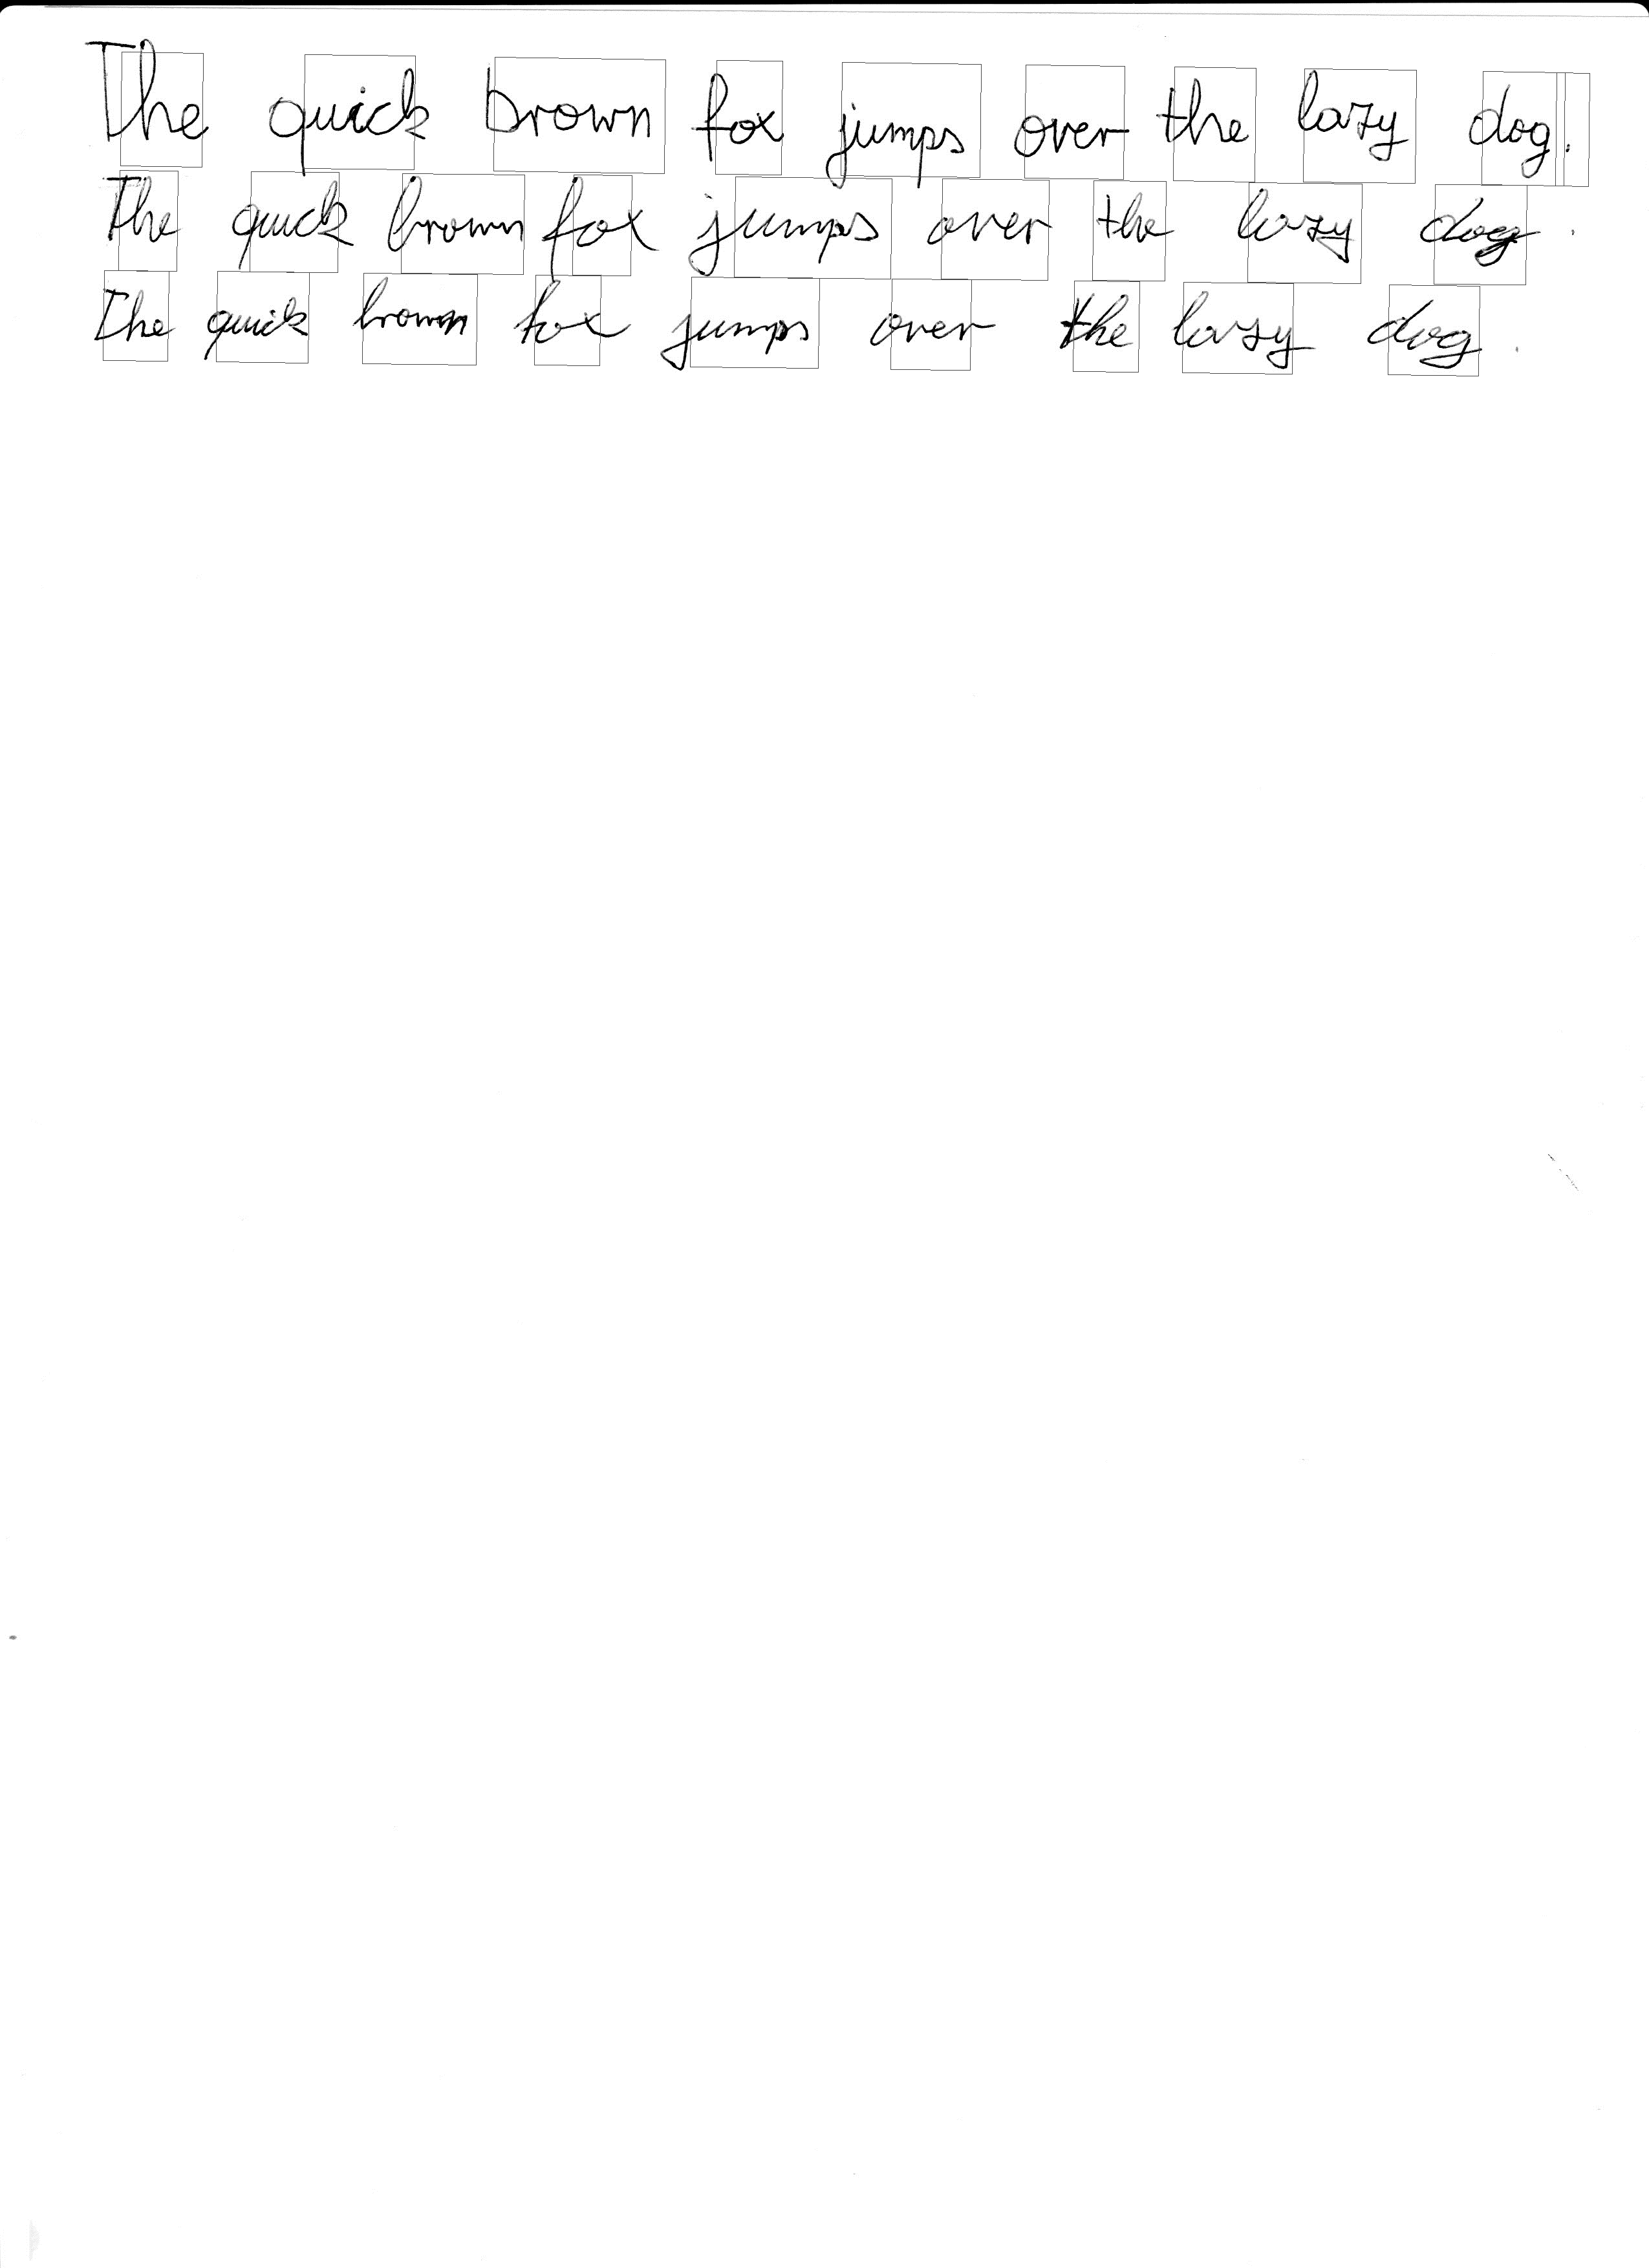 The quick brown fox jumps over the lazy dog.
The quick brown fox jumps over the lazy dog.
The quick brown fox jumps over the lazy dog.